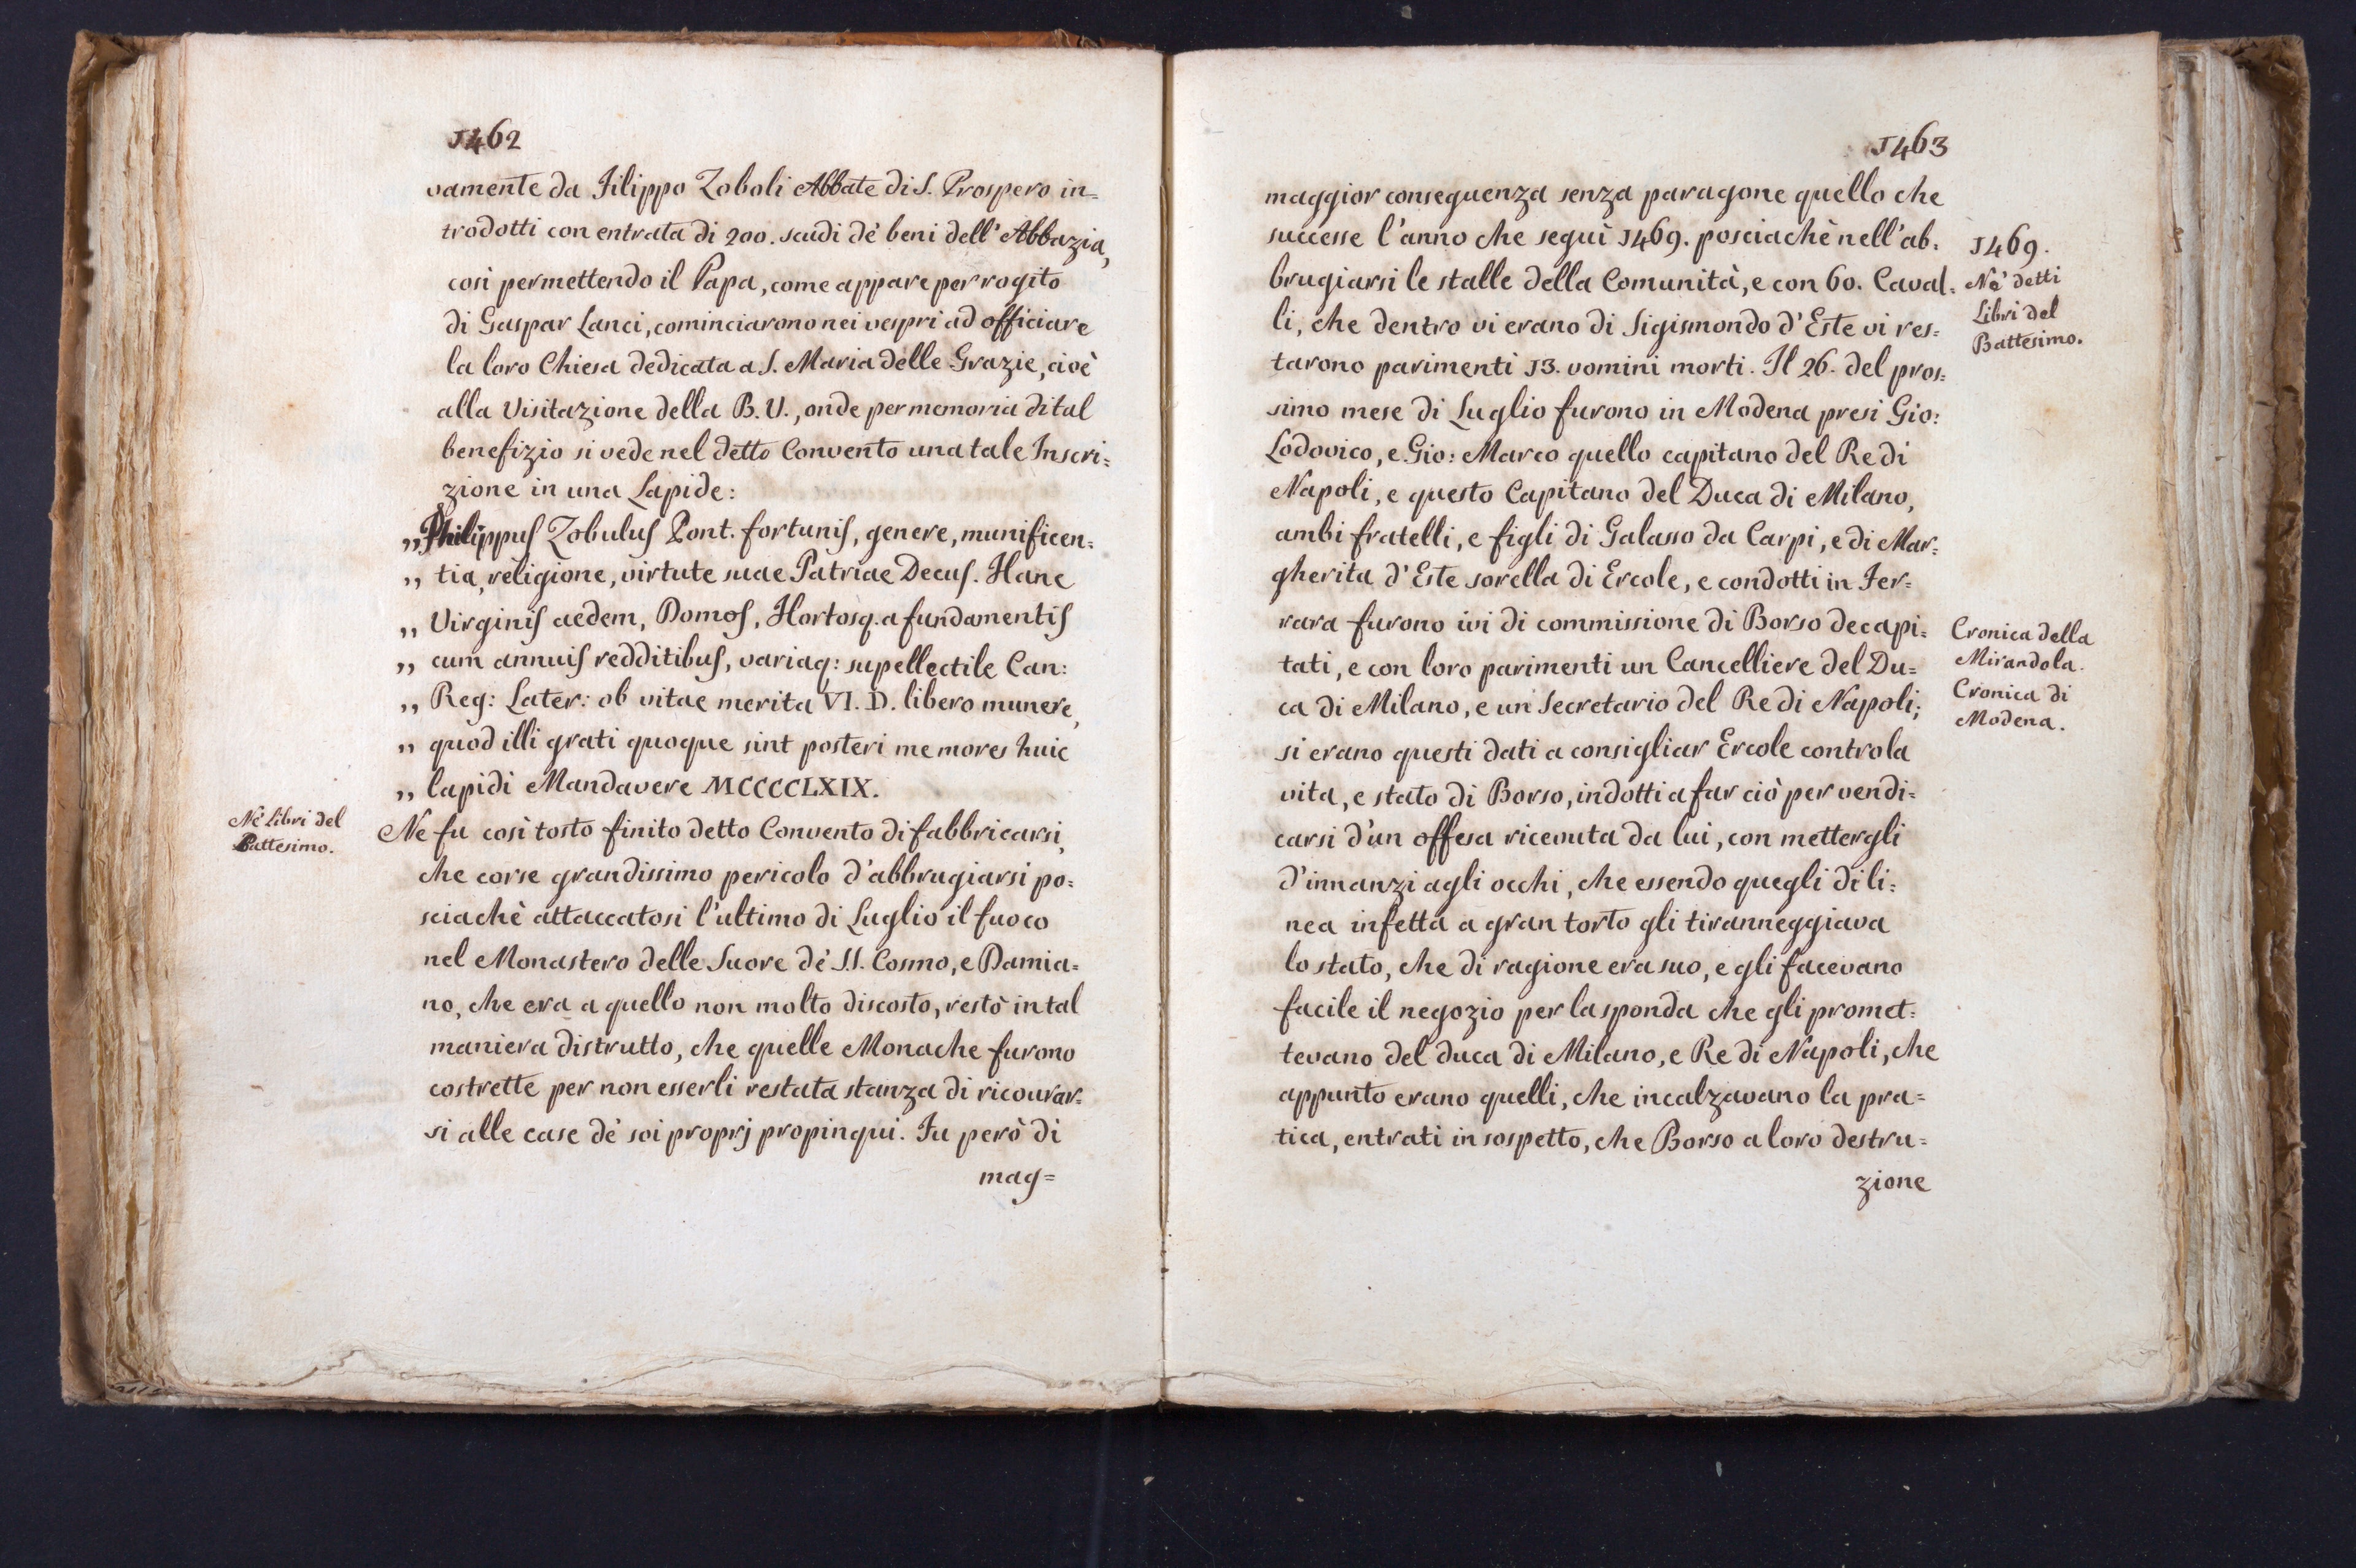 1462
vamente da Filippo Zoboli Abbate di S. Prospero in=
trodotti con entrata di 200. scudi de' beni dell'Abbazia,
così permettendo il Papa, come appare per rogito
di Gaspar Lanci, cominciarono nei vespri ad officiare
la loro Chiesa dedicata a S. Maria delle Grazie, cioè
alla Visitazione della B. V., onde per memoria di tal
benefizio si vede nel detto Convento una tale Inscri=
zione in una Lapide:
„ Philippus Zobulus Pont. fortunis, genere, munificen=
„ tia, religione, virtute suae Patriae Decus. Hanc
„ Virginis aedem, Domos, Hortosq. a fundamentis
„ cum annuis redditibus, variaq: supellectile Can:
„ Reg: Later: ob vitae merita VI. D. libero munere,
„ quod illi grati quoque sint posteri memores huic
„ lapidi Mandavere MCCCCLXIX.
Ne' Libri del
Battesimo.
Ne fu così tosto finito detto Convento di fabbricarsi,
che corse grandissimo pericolo d'abbrugiarsi po=
sciachè attaccatosi l'ultimo di Luglio il fuoco
nel Monastero delle Suore de' SS. Cosmo, e Damia=
no, che era a quello non molto discosto, restò in tal
maniera distrutto, che quelle Monache furono
costrette per non esserli restata stanza di ricovrar=
si alle case de' soi proprj propinqui. Fu però di
mag=
1463
maggior conseguenza senza paragone quello che
successe l'anno che seguì 1469. posciachè nell'ab=
brugiarsi le stalle della Comunità, e con 60. Caval=
li, che dentro vi erano di Sigismondo d'Este vi res=
tarono parimenti 13. uomini morti. Il 26. del pros=
simo mese di Luglio furono in Modena presi Gio:
Lodovico, e Gio: Marco quello capitano del Re di
Napoli, e questo Capitano del Duca di Milano,
ambi fratelli, e figli di Galasso da Carpi, e di Mar=
gherita d'Este sorella di Ercole, e condotti in Fer=
rara furono ivi di commissione di Borso decapi=
tati, e con loro parimenti un Cancelliere del Du=
ca di Milano, e un Secretario del Re di Napoli;
si erano questi dati a consigliar Ercole contro la
vita, e stato di Borso, indotti a far ciò per vendi=
carsi d'un offesa ricevuta da lui, con mettergli
d'innanzi agli occhi, che essendo quegli di li=
nea infetta a gran torto gli tiranneggiava
lo stato, che di ragione era suo, e gli facevano
facile il negozio per la sponda che gli promet=
tevano del duca di Milano, e Re di Napoli, che
appunto erano quelli, che incalzavano la pra=
tica, entrati in sospetto, che Borso a loro destru=
zione
1469.
Ne' detti
Libri del
Battesimo.
Cronica della
Mirandola.
Cronica di
Modena.